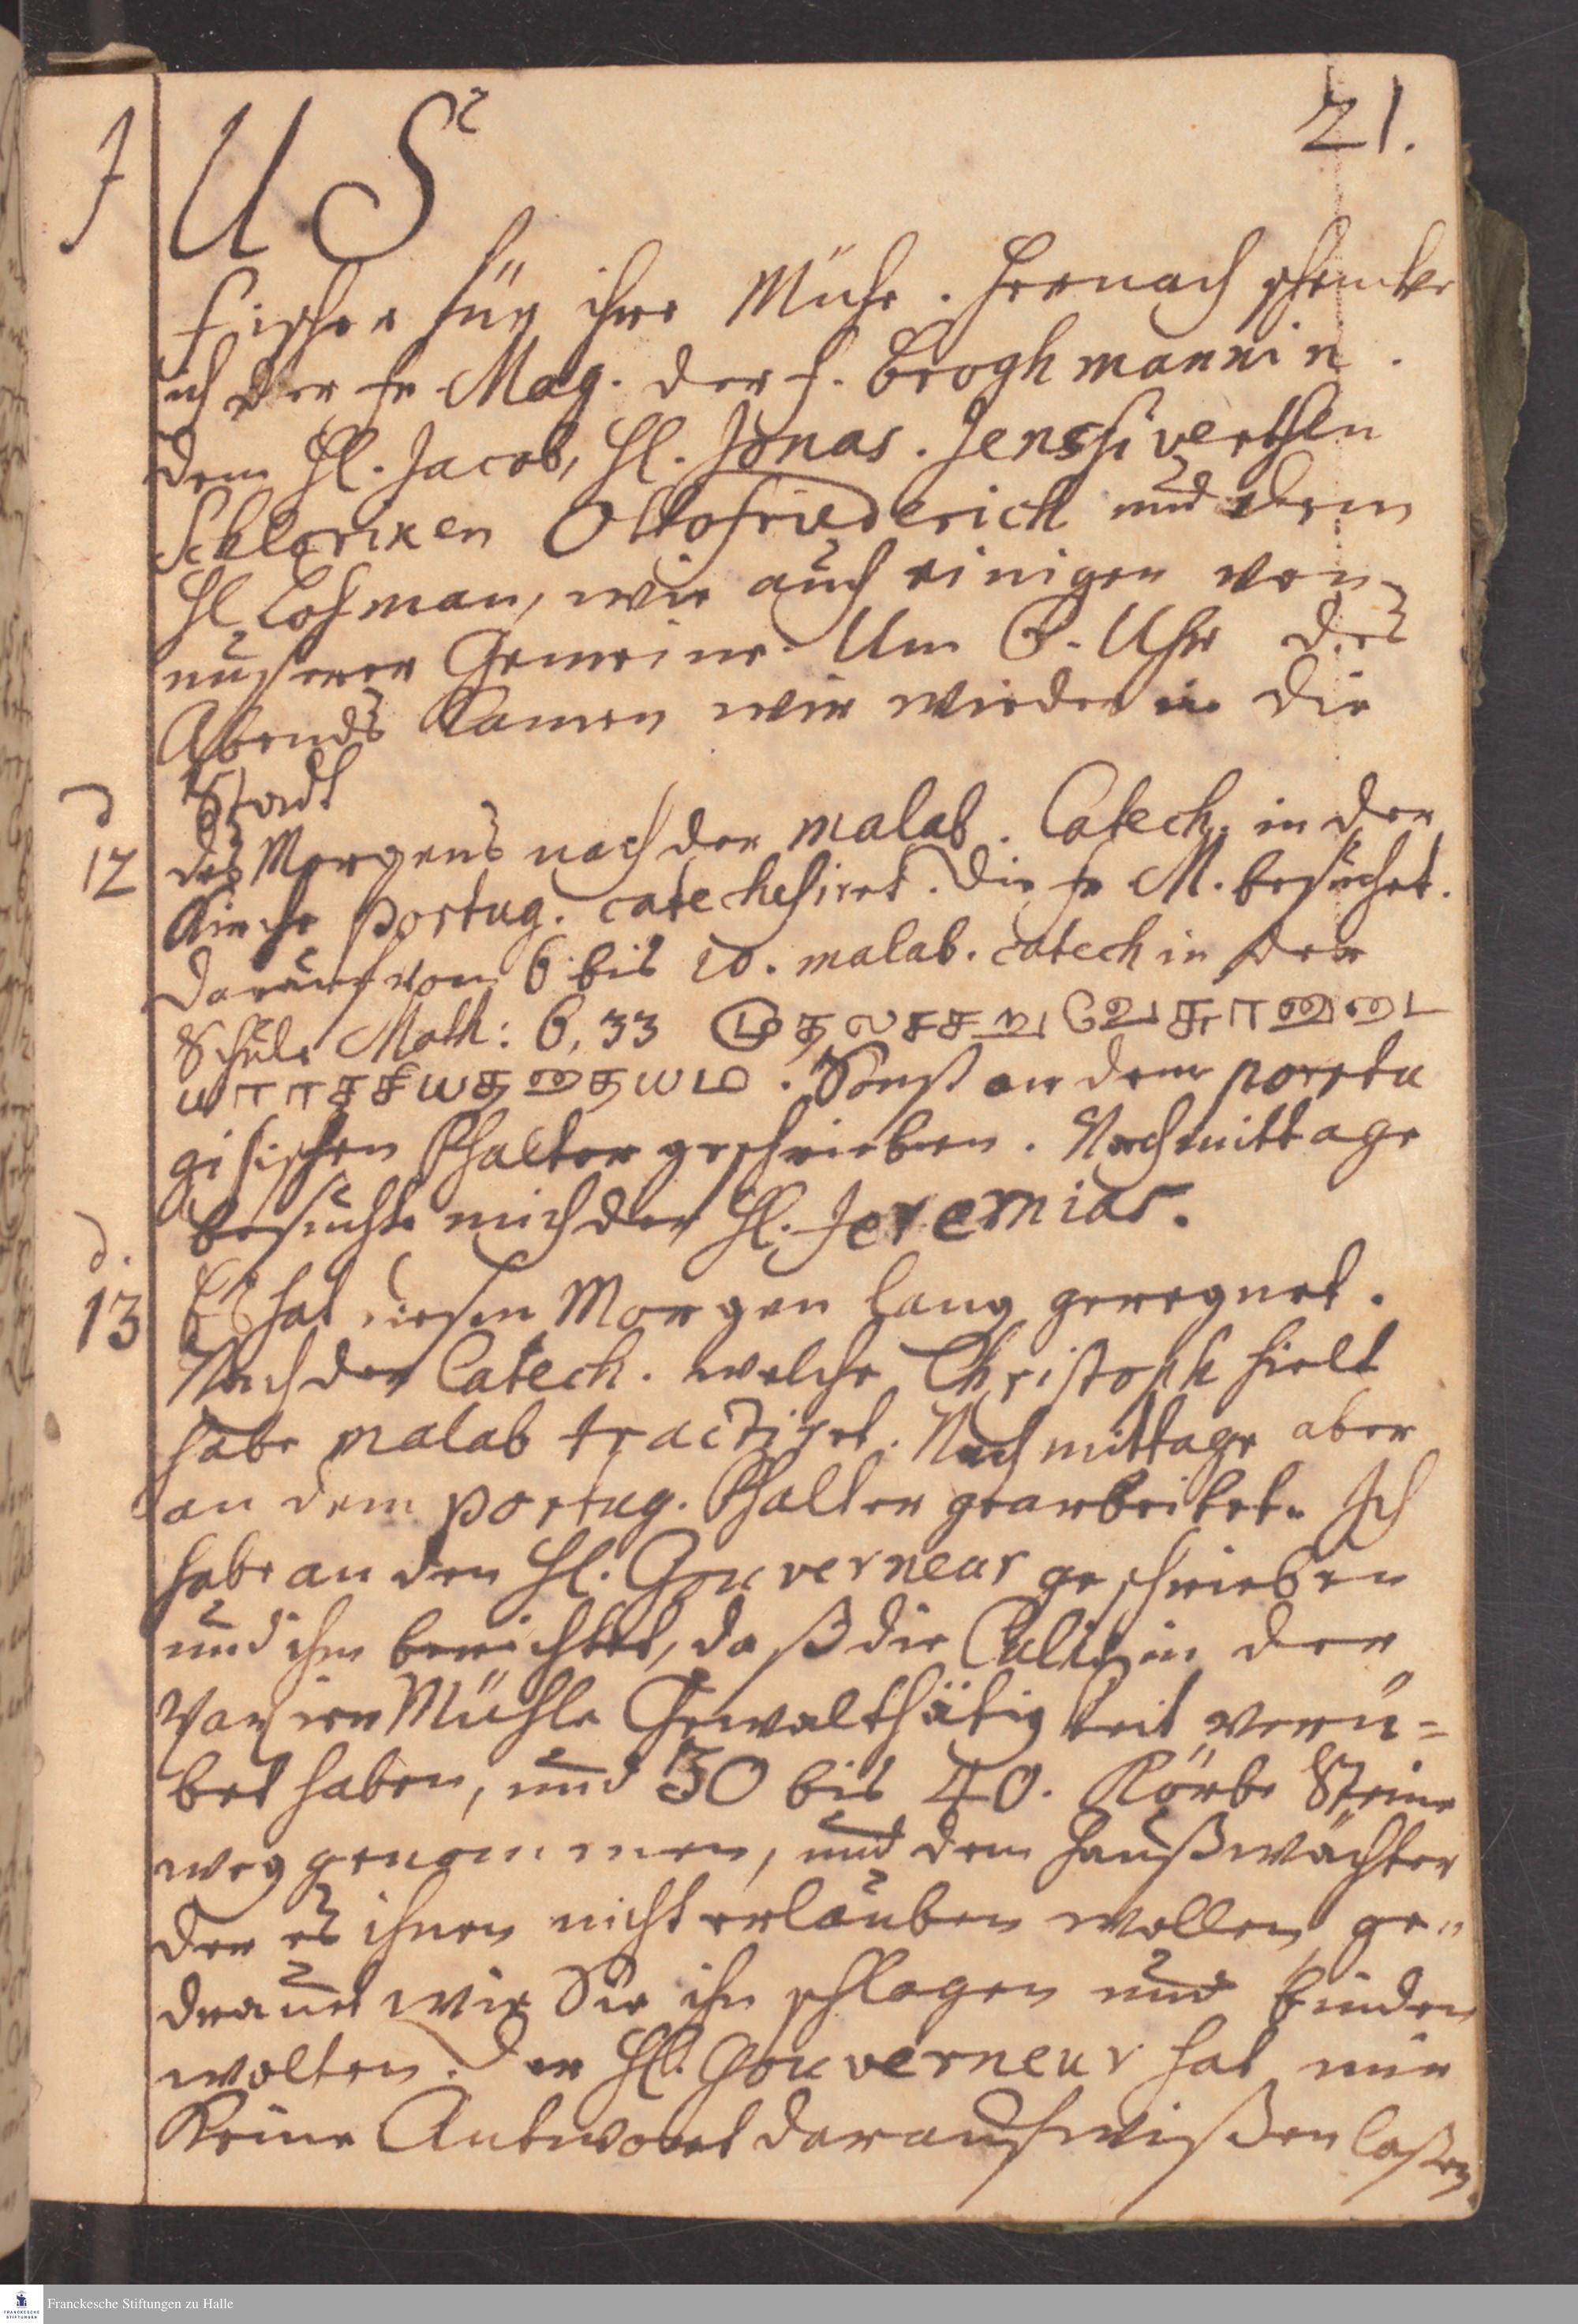 J U S
21.
Fischer für ihre Mühe. Hernach schenckte
ich der fr Mag. der f. Broghmannin.
dem H. Jacob, H. Jonas. Jenssivertsen
Ottofriederich und dem
H Lohman, wie auch einigen von
unserer Gemeine. Um 6. Uhr des
Abends kamen wir wieder in die
Stadt
d
12
des Morgens nach der malab. Catech. in der
Kirche portug. catechesiret. die fr M. besuchet.
darauf von 6 bis 10. malab. catech in der
Schule Math: 6, 33
. Sonst an dem portu
gisischen Psalter geschrieben. Nachmittage
besuchte mich der H. Jeremias.
d.
13
Es hat diesen Morgen lang geregnet.
Nach der Catech. welche Christoph hielt
habe malab tractiret. Nachmittage aber
an dem portug. Psalter gearbeitet. Ich
habe an den H. Gouverneur geschrieben
und ihm berichtet, daß die Culis in der
Papier Mühle Gewalthätigkeit verü=
bet haben, und 30 bis 40. Körbe Steine
weggenommen, und dem Haußwächter
der es ihnen nicht erlauben wollen, ge=
drauet wie Sie ihn schlagen und binden
wolten. der H. Gouverneur hat mir
Keine Antwort darauf wißen laßen
Franckesche Stiftungen zu Halle